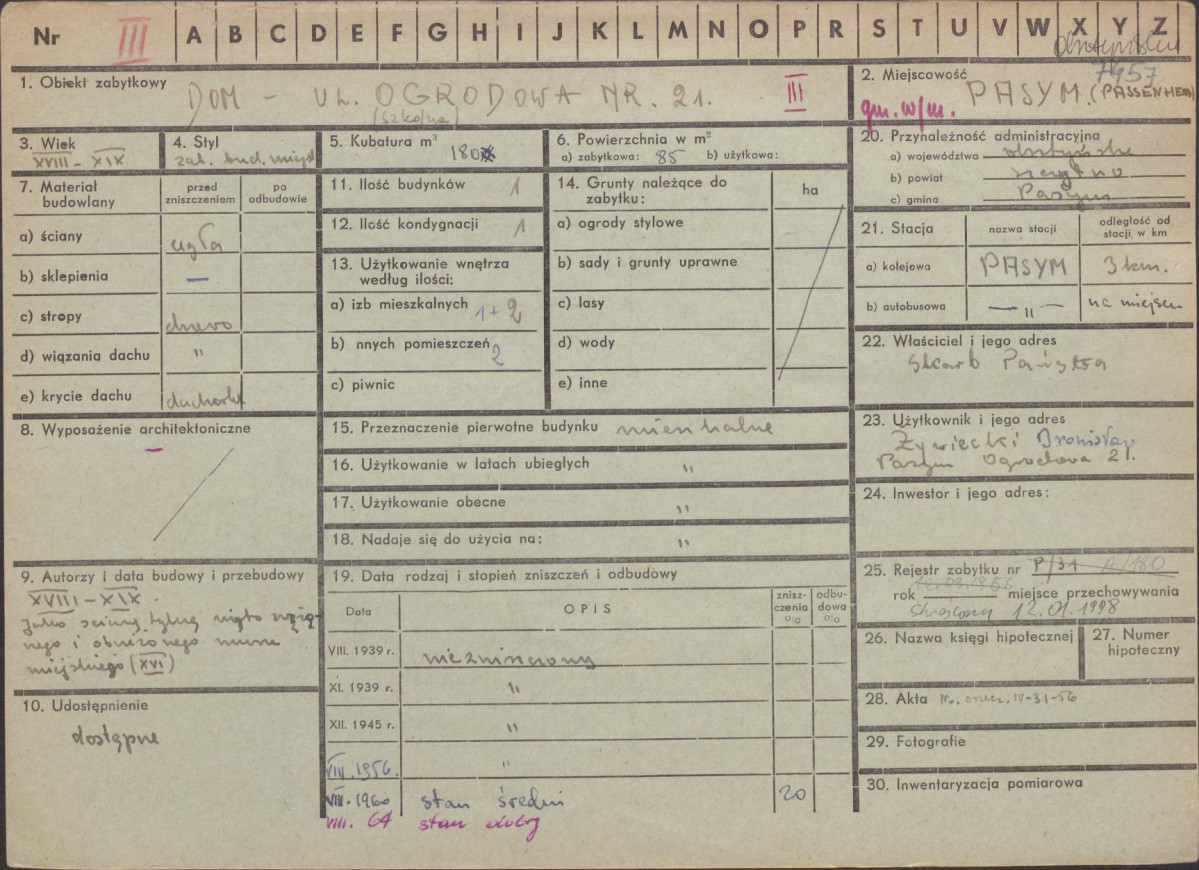 Nr III A B C D E F G H I J K L M N O P R S T U V W X Y Z
olsztyńskie
7957
1. Obiekt zabytkowy
DOM - UL. OGRODOWA NR. 21. III
(Szkolna)
2. Miejscowość
PASYM. (PASSENHEIM)
gm. w/m.
3. Wiek
XVIII - XIX
4. Styl
zab. bud. miejsk
5. Kubatura m³ 180
6. Powierzchnia w m²
a) zabytkowa: 85 b) użytkowa:
20. Przynależność administracyjna
a) województwo olsztyńskie
b) powiat Szczytno
c) gmina Pasym
7. Materiał budowlany
przed zniszczeniem
po odbudowie
a) ściany cegła
b) sklepienia —
c) stropy drewno
d) wiązania dachu "
e) krycie dachu dachówka
11. Ilość budynków 1
12. Ilość kondygnacji 1
13. Użytkowanie wnętrza według ilości:
a) izb mieszkalnych 1+2
b) nnych pomieszczeń 2
c) piwnic
14. Grunty należące do zabytku:
ha
a) ogrody stylowe
b) sady i grunty uprawne
c) lasy
d) wody
e) inne
21. Stacja
nazwa stacji
odległość od stacji w km
a) kolejowa PASYM 3 km.
b) autobusowa — " — na miejscu
22. Właściciel i jego adres
Skarb Państwa
8. Wyposażenie architektoniczne
—
15. Przeznaczenie pierwotne budynku mieszkalne
16. Użytkowanie w latach ubiegłych "
17. Użytkowanie obecne "
18. Nadaje się do użycia na: "
23. Użytkownik i jego adres
Żywiecki Bronisław
Pasym Ogrodowa 21.
24. Inwestor i jego adres:
9. Autorzy i data budowy i przebudowy
XVIII - XIX.
Jako ścianę tylną użyto
nego i obniżonego muru
miejskiego (XVI)
10. Udostępnienie
dostępne
19. Data rodzaj i stopień zniszczeń i odbudowy
Data
OPIS
zniszczenia %
odbudowa %
VIII. 1939 r. niezniszczony
XI. 1939 r. "
XII. 1945 r. "
VIII. 1956. "
VIII. 1960 stan średni 20
VIII. 64 stan dobry
25. Rejestr zabytku nr P/31 A/180
12.03.1956
rok miejsce przechowywania
skreślony 12.01.1998
26. Nazwa księgi hipotecznej
27. Numer hipoteczny
28. Akta IV-31-56
29. Fotografie
30. Inwentaryzacja pomiarowa